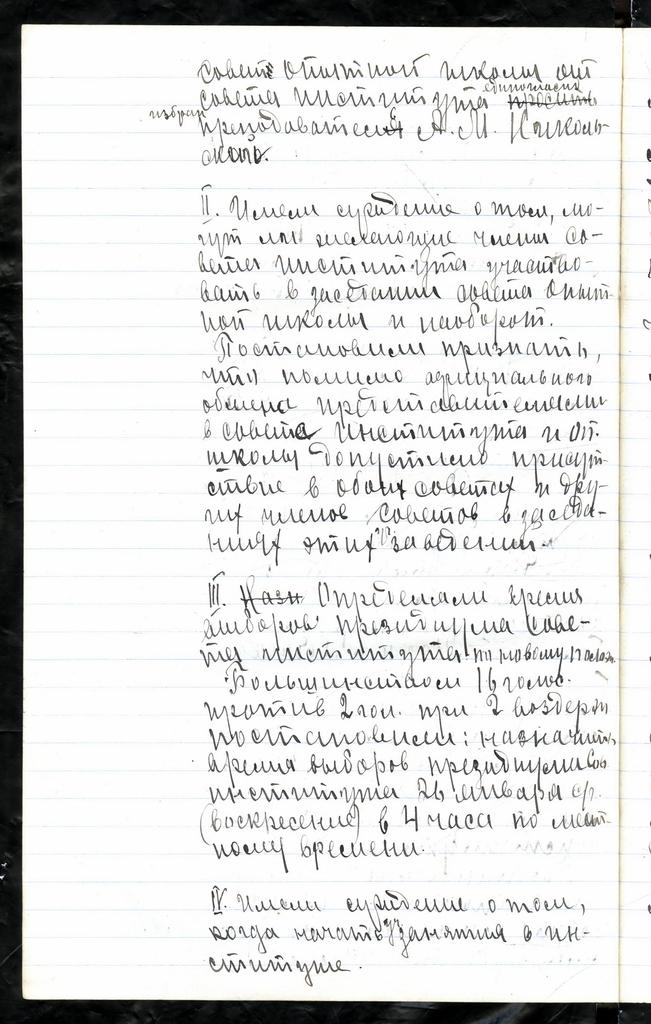 совет опытной школы от
совета института единогласно просить
избран преподаватель А. М. Николь-
ский.
II. Имели суждение о том, мо-
гут ли желающие члены со-
вета института участво-
вать в заседании совета опыт-
ной школы и наоборот.
Постановили признать,
что помимо официального
обмена представителями
в совете института и оп.
школы допустимо присут-
ствие в обоих советах и дру-
гих членов советов в заседа-
ниях этих уч. заведений.
III. Назн Определяли время
выборов президиума сове-
та института по новому полож.
Большинством 16 голос.
против 2 гол. при 2 воздерж
постановили: назначить
время выборов президиума Сов
института 26 января с/г.
(воскресение) в 4 часа по мест-
ному времени.
IV. Имели суждение о том,
когда начать уч. занятия в ин-
ституте.